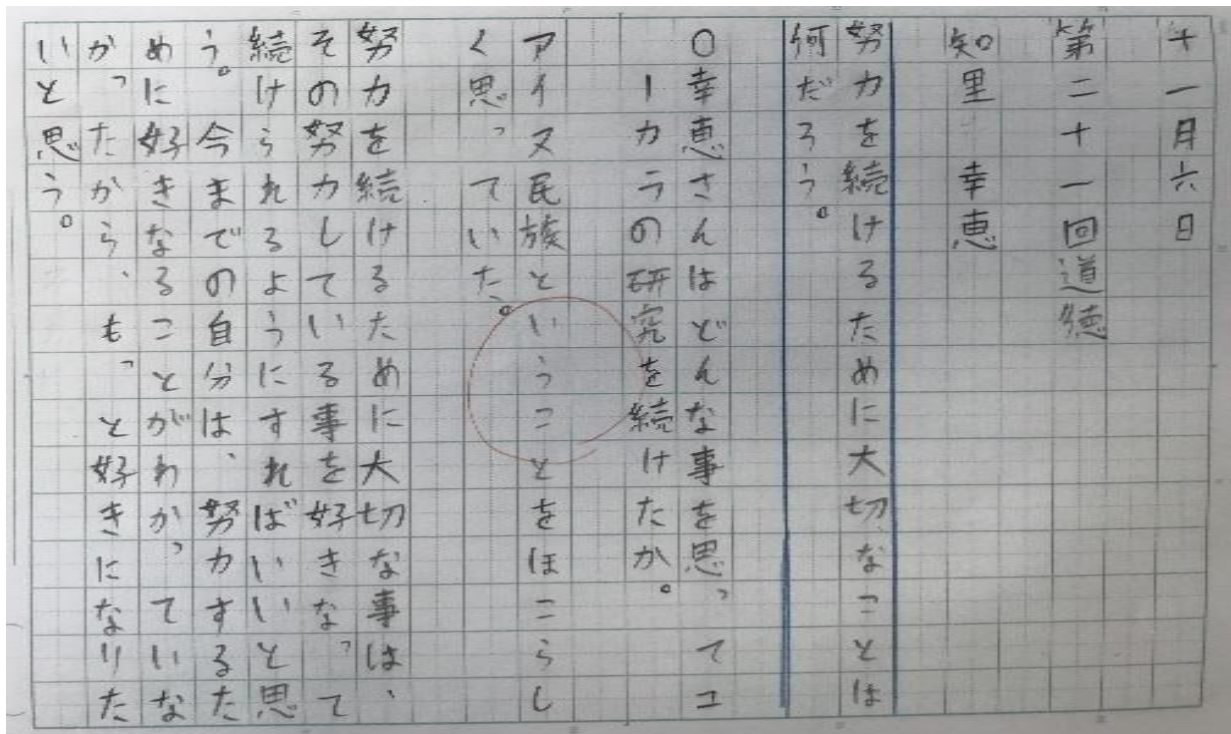 十一月六日
第二十一回道徳
知里　幸恵
努力を続けるために大切なことは
何だろう。
〇幸恵さんはどんな事を思ってユ
ーカラの研究を続けたか。
アイヌ民族ということをほこらし
く思っていた。
努力を続けるために大切な事は、
その努力している事を好きなって
続けられるようにすればいいと思
う。今までの自分は、努力するた
めに好きなることがわかっていな
かったから、もっと好きになりた
いと思う。